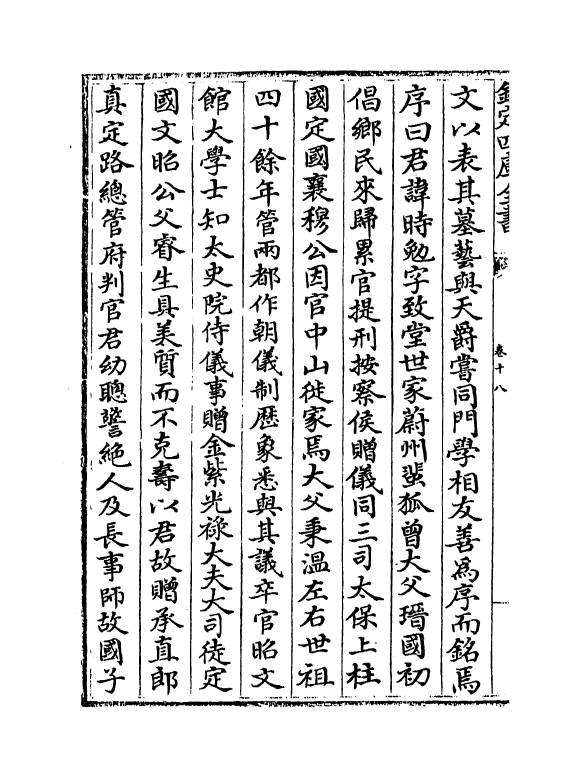 欽定四庫全書
卷十八
文以表其墓藝與天爵嘗同門學相友善為序而銘焉
序曰君諱時勉字致堂世家蔚州蜚狐曾大父瑨國初
倡鄉民來歸累官提刑按察侯贈儀同三司太保上柱
國定國襄穆公因官中山徙家焉大父秉溫左右世祖
四十餘年管兩都作朝儀制歷象悉與其議卒官昭文
館大學士知太史院侍儀事贈金紫光祿大夫大司徒定
國文昭公父睿生具美質而不克壽以君故贈承直郎
真定路總管府判官君幼聰警絶人及長事師故國子